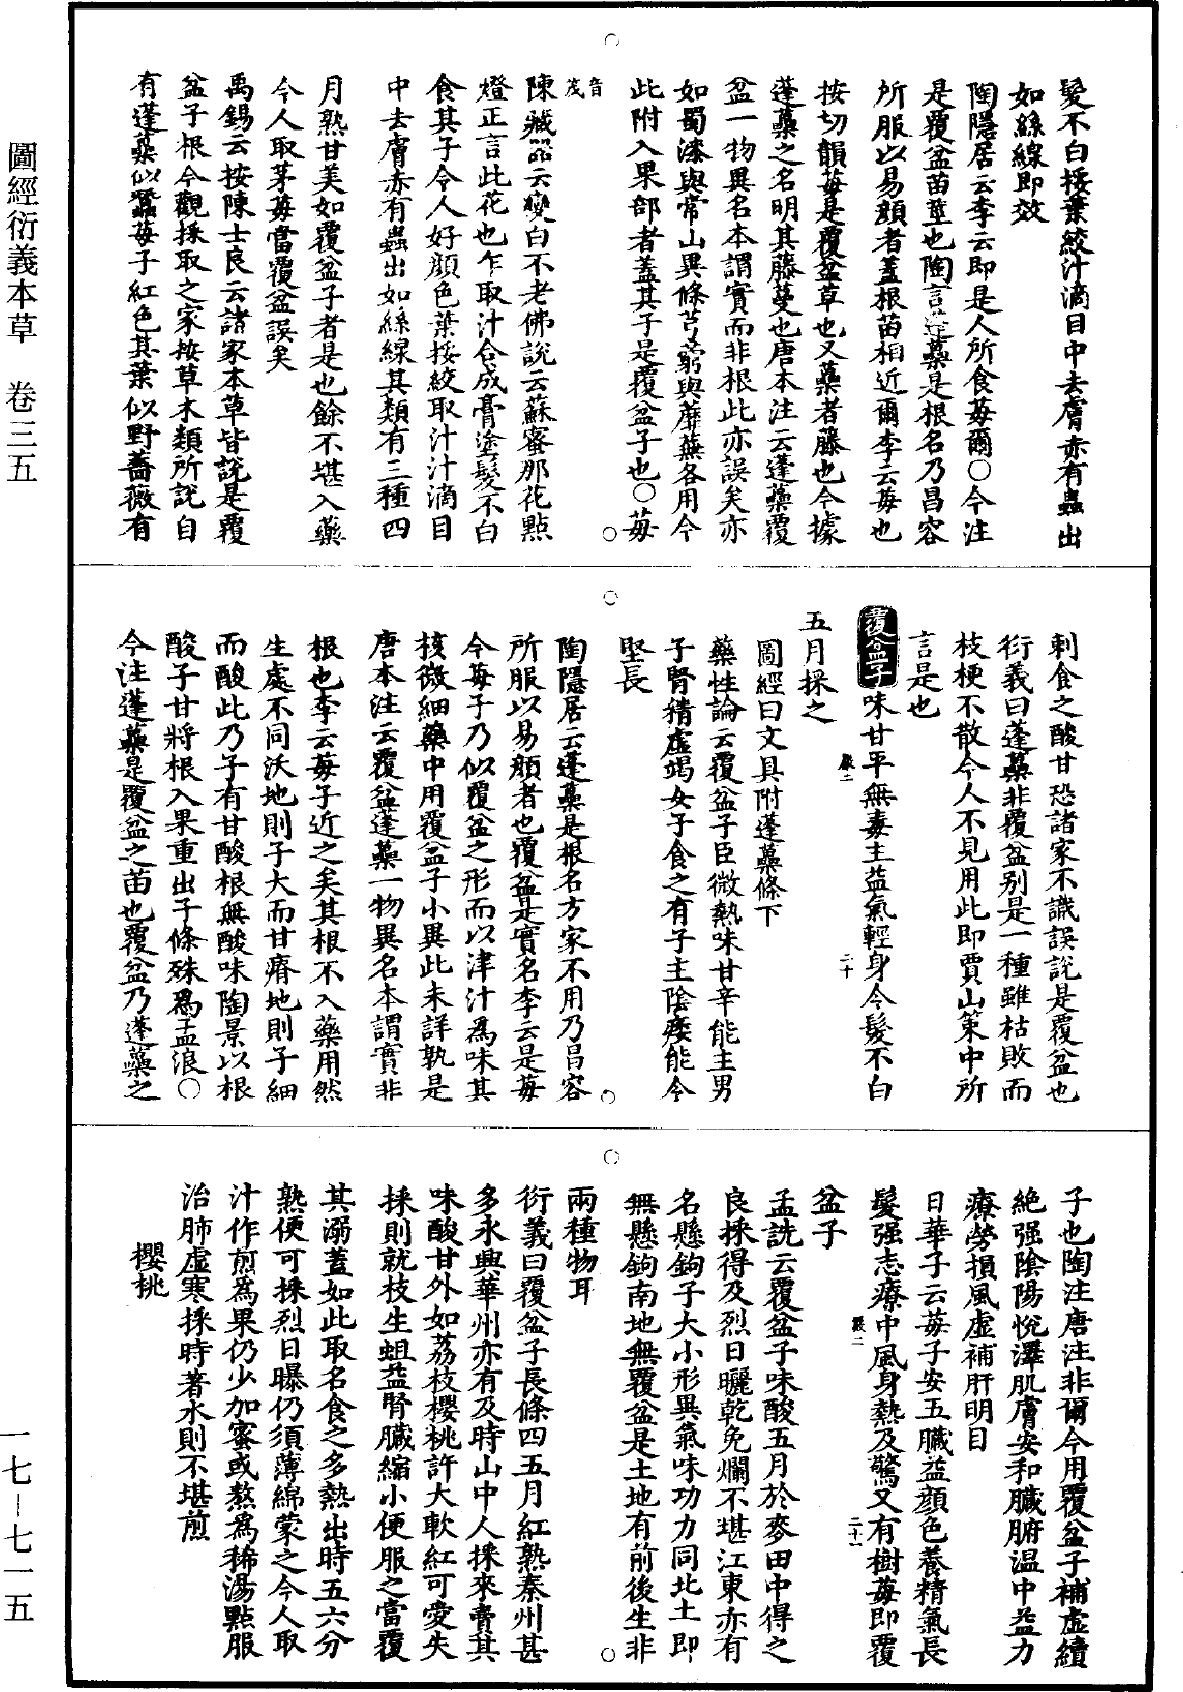 髮不白挼葉絞汁滴目中去膚赤有蟲出
如絲線即效
陶隱居云李云即是人所食莓爾○今注
是覆盆苗莖也陶言蓬蘽是根名乃昌容
所服以易顏者蓋根苗相近爾李云莓也
按切韻莓是覆盆草也又蘽者藤也今據
蓬蘽之名明其藤蔓也唐本注云蓬蘽覆
盆一物異名本謂實而非根此亦誤矣亦
如蜀漆與常山異條芎藭與蘼蕪各用今
此附入果部者蓋其子是覆盆子也○莓
音茂
陳藏器云變白不老佛說云蘇蜜那花點
燈正言此花也乍取汁合成膏塗髮不白
食其子令人好顏色葉挼絞取汁汁滴目
中去膚赤有蟲出如絲線其類有三種四
月熟甘美如覆盆子者是也餘不堪入藥
今人取茅莓當覆盆誤矣
禹錫云按陳士良云諸家本草皆說是覆
盆子根今觀採取之家按草木類所說自
有蓬蘽似蠶莓子紅色其葉似野薔薇有
刺食之酸甘恐諸家不識誤說是覆盆也
衍義曰蓬蘽非覆盆别是一種雖枯敗而
枝梗不散今人不見用此即賈山策中所
言是也
覆盆子味甘平無毒主益氣輕身令髮不白
五月採之
圖經曰文具附蓬蘽條下
藥性論云覆盆子臣微熱味甘辛能主男
子腎精虛竭女子食之有子主陰痿能令
堅長
陶隱居云蓬蘽是根名方家不用乃昌容
所服以易顏者也覆盆是實名李云是莓
今莓子乃似覆盆之形而以津汁爲味其
核微細藥中用覆盆子小異此未詳孰是
唐本注云覆盆蓬蘽一物異名本謂實非
根也李云莓子近之矣其根不入藥用然
生處不同沃地則子大而甘瘠地則子細
而酸此乃子有甘酸根無酸味陶景以根
酸子甘將根入果重出子條殊爲孟浪○
今注蓬蘽是覆盆之苗也覆盆乃蓬蘽之
子也陶注唐注非爾今用覆盆子補虛續
絶强陰陽悅澤肌膚安和臟腑温中益力
療勞損風虛補肝明目
日華子云莓子安五臟益顏色養精氣長
髮强志療中風身熱及驚又有樹莓即覆
盆子
孟詵云覆盆子味酸五月於麥田中得之
良採得及烈日曬乾免爛不堪江東亦有
名懸鉤子大小形異氣味功力同北土即
無懸鉤南地無覆盆是土地有前後生非
兩種物耳
衍義曰覆盆子長條四五月紅熟秦州甚
多永興華州亦有及時山中人採來賣其
味酸甘外如荔枝櫻桃許大軟紅可愛失
採則就枝生蛆益腎臟縮小便服之當覆
其溺蓋如此取名食之多熱出時五六分
熟便可採烈日曝仍須薄綿蒙之今人取
汁作煎爲果仍少加蜜或熬爲稀湯點服
治肺虛寒採時著水則不堪煎
櫻桃
圖經衍義本草 卷三五
一七-七一五